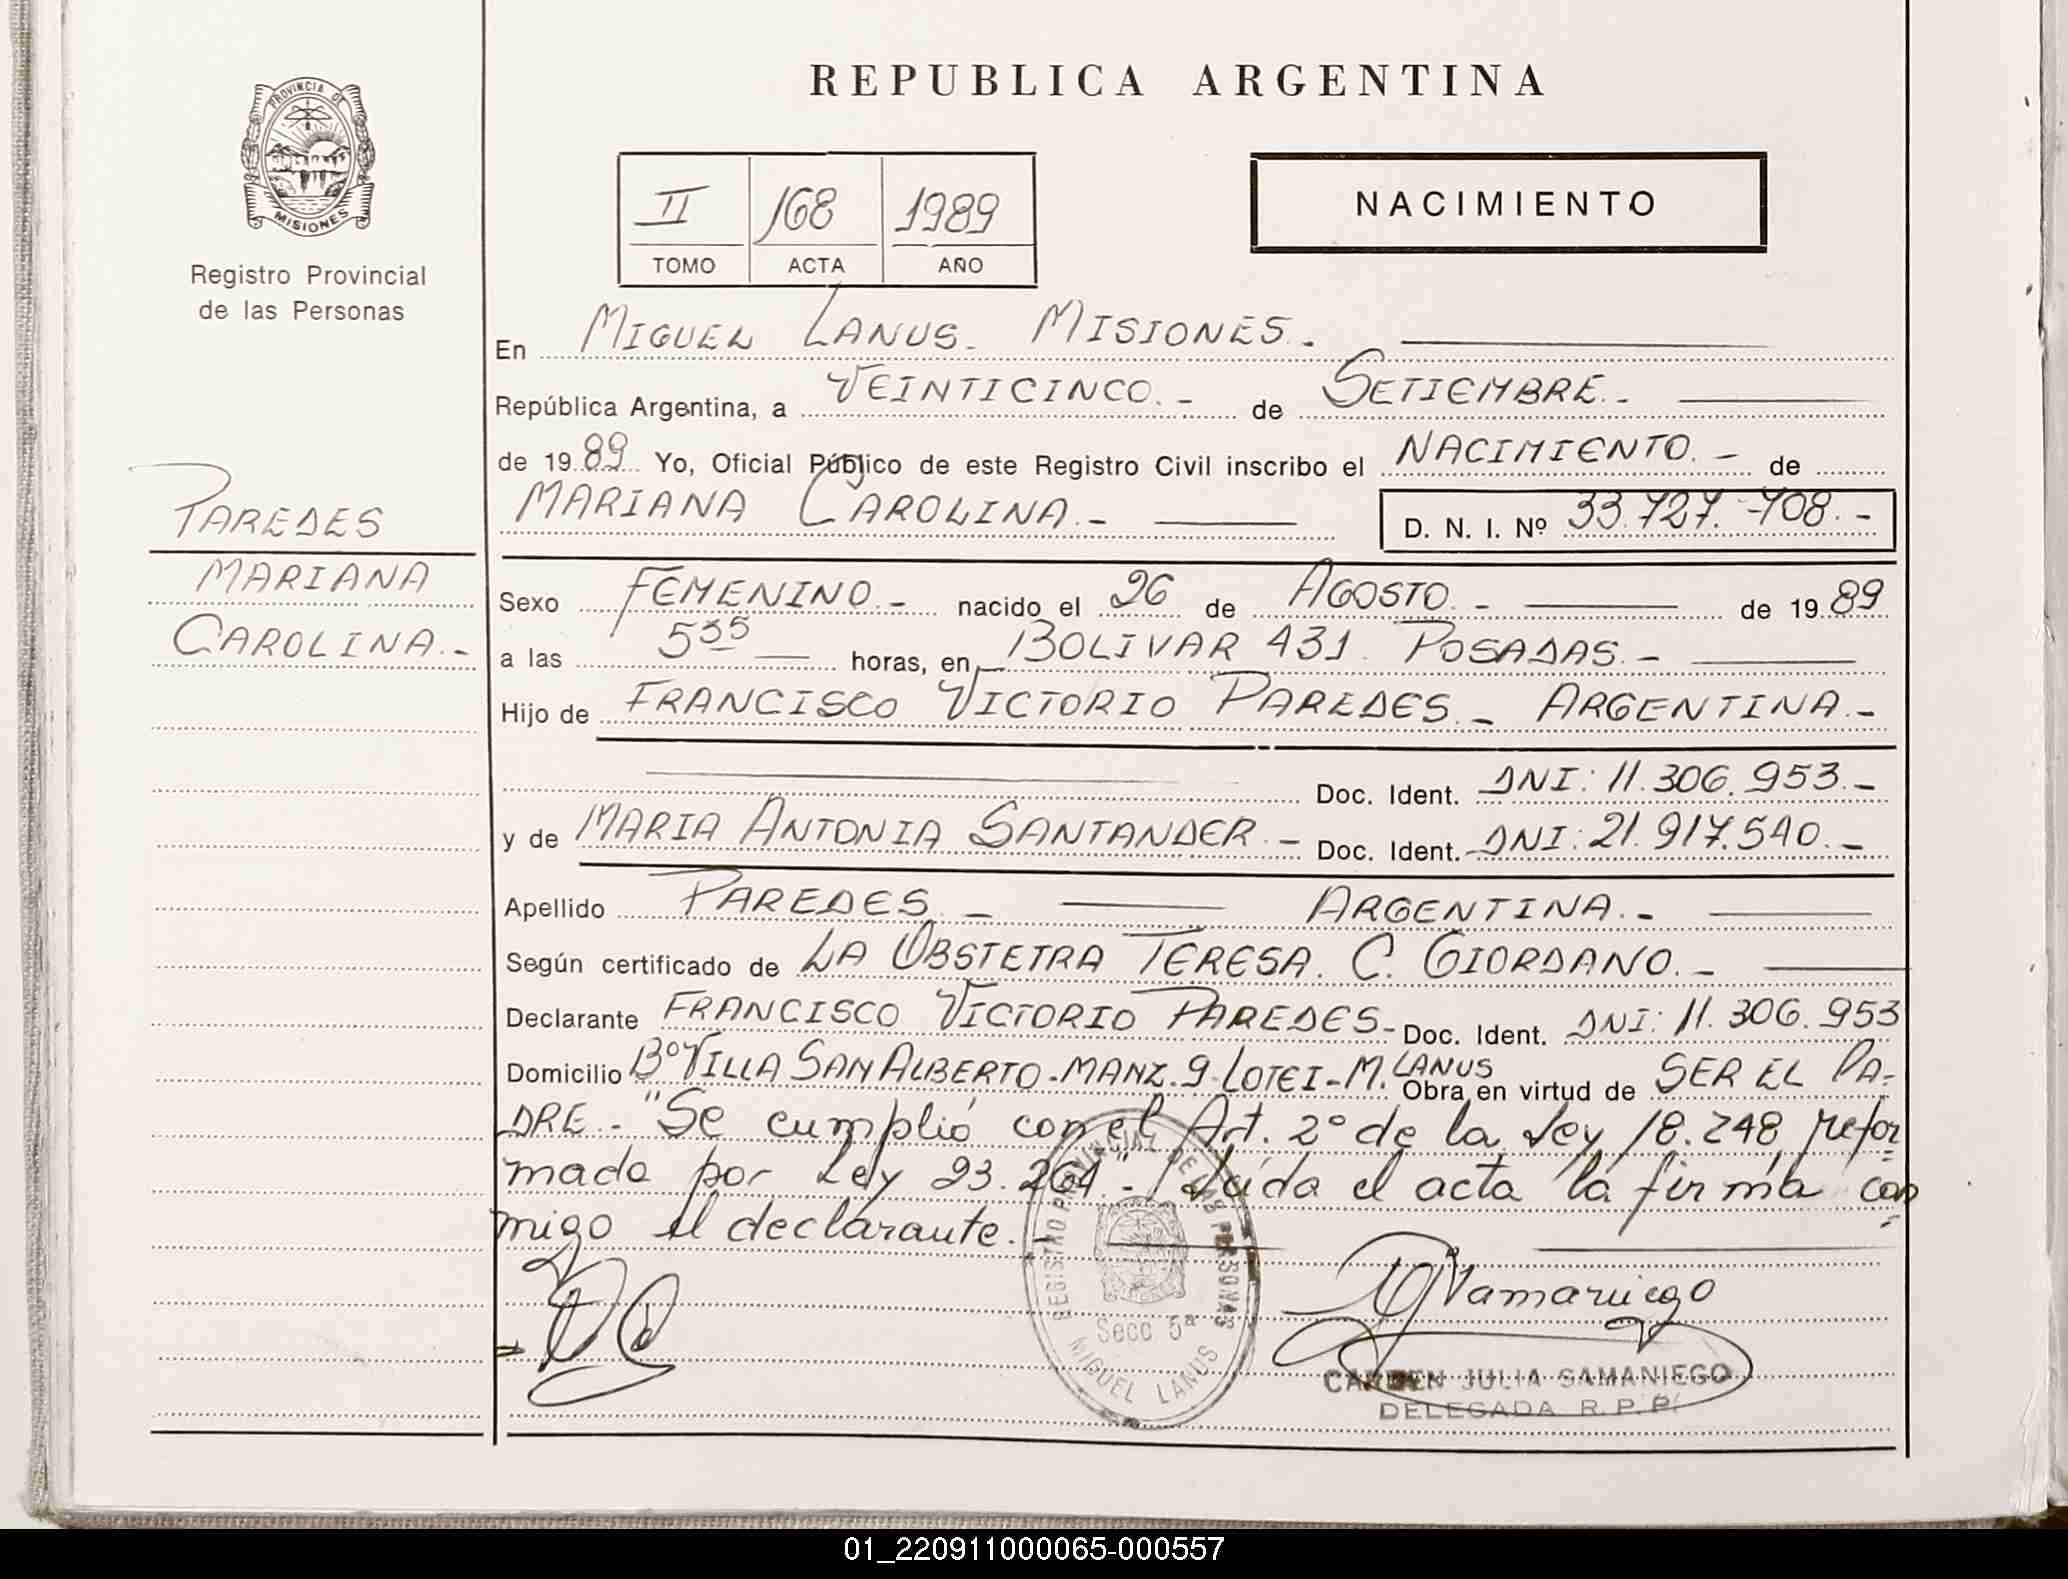 REPUBLICA ARGENTINA
PROVINCIA DE
MISIONES
Registro Provincial
de las Personas
II 168 1989
TOMO ACTA AÑO
NACIMIENTO
En MIGUEL LANUS- MISIONES.-
República Argentina, a VEINTICINCO.- de SETIEMBRE.-
de 1989 Yo, Oficial Público de este Registro Civil inscribo el NACIMIENTO.- de
MARIANA CAROLINA.- D. N. I. Nº 33.727.708.-
PAREDES
MARIANA
CAROLINA.-
Sexo FEMENINO.- nacido el 26 de AGOSTO.- de 1989
a las 5 35 horas, en BOLIVAR 431. POSADAS.-
Hijo de FRANCISCO VICTORIO PAREDES.- ARGENTINA.-
Doc. Ident. DNI: 11.306.953.-
y de MARIA ANTONIA SANTANDER.- Doc. Ident. DNI: 21.917.540.-
Apellido PAREDES.- ARGENTINA.-
Según certificado de LA OBSTETRA TERESA. C. GIORDANO.-
Declarante FRANCISCO VICTORIO PAREDES- Doc. Ident. DNI: 11.306.953
Domicilio Bº VILLA SAN ALBERTO-MANZ.9-LOTE1-M.LANUS Obra en virtud de SER EL PA-
DRE.- "Se cumplió con el Art. 2º de la Ley 18.248 refor
mada por Ley 23.264".- Leída el acta la firma con
migo el declarante.-
REGISTRO PROVINCIAL DE LAS PERSONAS
Secc 5ª
MIGUEL LANUS
CARMEN JULIA SAMANIEGO
DELEGADA R.P.P.
01_220911000065-000557